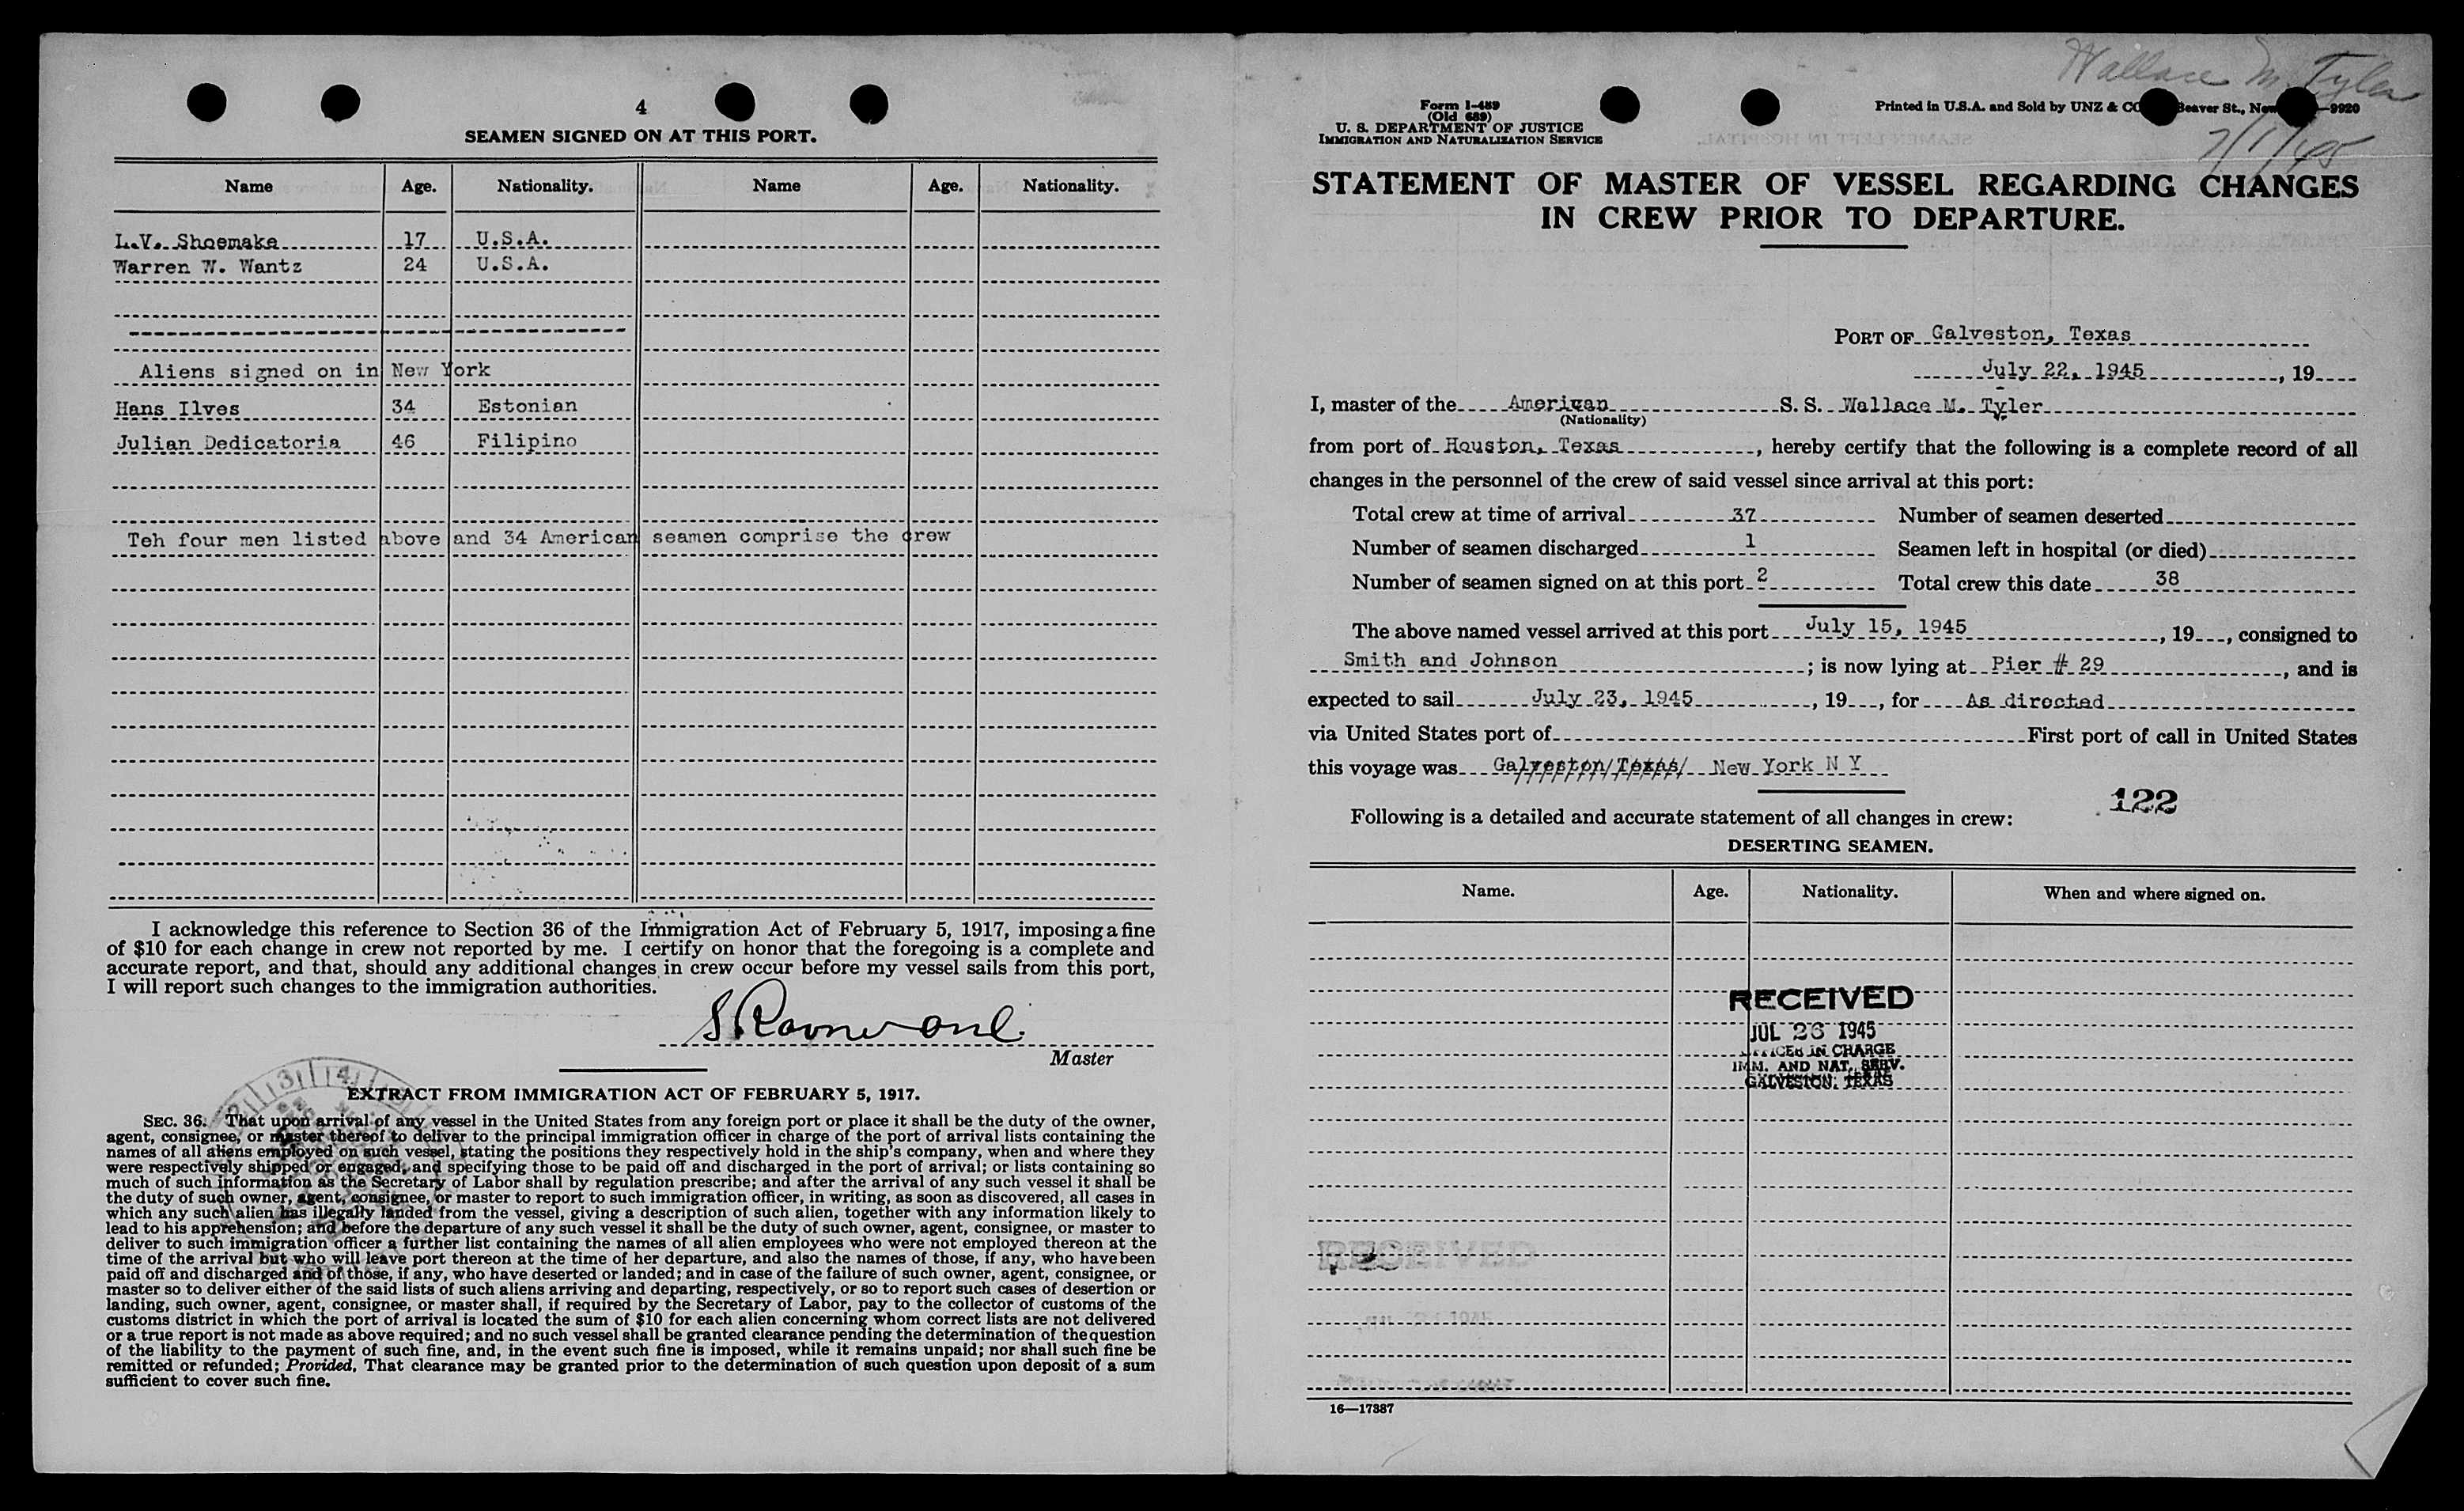 4
SEAMEN SIGNED ON AT THIS PORT.
Name Age. Nationality. Name Age. Nationality.
L.V. Shoemake 17 U.S.A.
Warren W. Wantz 24 U.S.A.
Aliens signed on in New York
Hans Ilves 34 Estonian
Julian Dedicatoria 46 Filipino
Teh four men listed above and 34 American seamen comprise the crew
I acknowledge this reference to Section 36 of the Immigration Act of February 5, 1917, imposing a fine
of $10 for each change in crew not reported by me. I certify on honor that the foregoing is a complete and
accurate report, and that, should any additional changes in crew occur before my vessel sails from this port,
I will report such changes to the immigration authorities.
Master
EXTRACT FROM IMMIGRATION ACT OF FEBRUARY 5, 1917.
SEC. 36. That upon arrival of any vessel in the United States from any foreign port or place it shall be the duty of the owner,
agent, consignee, or master thereof to deliver to the principal immigration officer in charge of the port of arrival lists containing the
names of all aliens employed on such vessel, stating the positions they respectively hold in the ship's company, when and where they
were respectively shipped or engaged, and specifying those to be paid off and discharged in the port of arrival; or lists containing so
much of such information as the Secretary of Labor shall by regulation prescribe; and after the arrival of any such vessel it shall be
the duty of such owner, agent, consignee, or master to report to such immigration officer, in writing, as soon as discovered, all cases in
which any such alien has illegally landed from the vessel, giving a description of such alien, together with any information likely to
lead to his apprehension; and before the departure of any such vessel it shall be the duty of such owner, agent, consignee, or master to
deliver to such immigration officer a further list containing the names of all alien employees who were not employed thereon at the
time of the arrival but who will leave port thereon at the time of her departure, and also the names of those, if any, who have been
paid off and discharged and of those, if any, who have deserted or landed; and in case of the failure of such owner, agent, consignee, or
master so to deliver either of the said lists of such aliens arriving and departing, respectively, or so to report such cases of desertion or
landing, such owner, agent, consignee, or master shall, if required by the Secretary of Labor, pay to the collector of customs of the
customs district in which the port of arrival is located the sum of $10 for each alien concerning whom correct lists are not delivered
or a true report is not made as above required; and no such vessel shall be granted clearance pending the determination of the question
of the liability to the payment of such fine, and, in the event such fine is imposed, while it remains unpaid; nor shall such fine be
remitted or refunded; Provided, That clearance may be granted prior to the determination of such question upon deposit of a sum
sufficient to cover such fine.
Wallace M. Tyler
7/1/45
Form I-489
(Old 689)
U. S. DEPARTMENT OF JUSTICE
IMMIGRATION AND NATURALIZATION SERVICE
Printed in U.S.A. and Sold by UNZ & CO Beaver St., New —9920
STATEMENT OF MASTER OF VESSEL REGARDING CHANGES
IN CREW PRIOR TO DEPARTURE.
PORT OF Galveston, Texas
July 22, 1945, 19
I, master of the American S. S. Wallace M. Tyler
(Nationality)
from port of Houston, Texas, hereby certify that the following is a complete record of all
changes in the personnel of the crew of said vessel since arrival at this port:
Total crew at time of arrival 37 Number of seamen deserted
Number of seamen discharged 1 Seamen left in hospital (or died)
Number of seamen signed on at this port 2 Total crew this date 38
The above named vessel arrived at this port July 15, 1945, 19, consigned to
Smith and Johnson; is now lying at Pier # 29, and is
expected to sail July 23, 1945, 19, for As directed
via United States port of First port of call in United States
this voyage was Galveston Texas New York N Y
122
Following is a detailed and accurate statement of all changes in crew:
DESERTING SEAMEN.
Name. Age. Nationality. When and where signed on.
RECEIVED
JUL 26 1945
OFFICER IN CHARGE
IMM. AND NAT. SERV.
GALVESTON, TEXAS
RECEIVED
16—17387